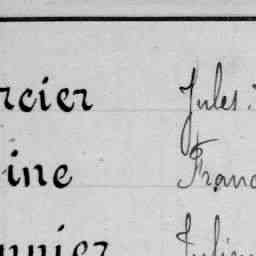 rcier Jules
ine Franc
nnier Julien